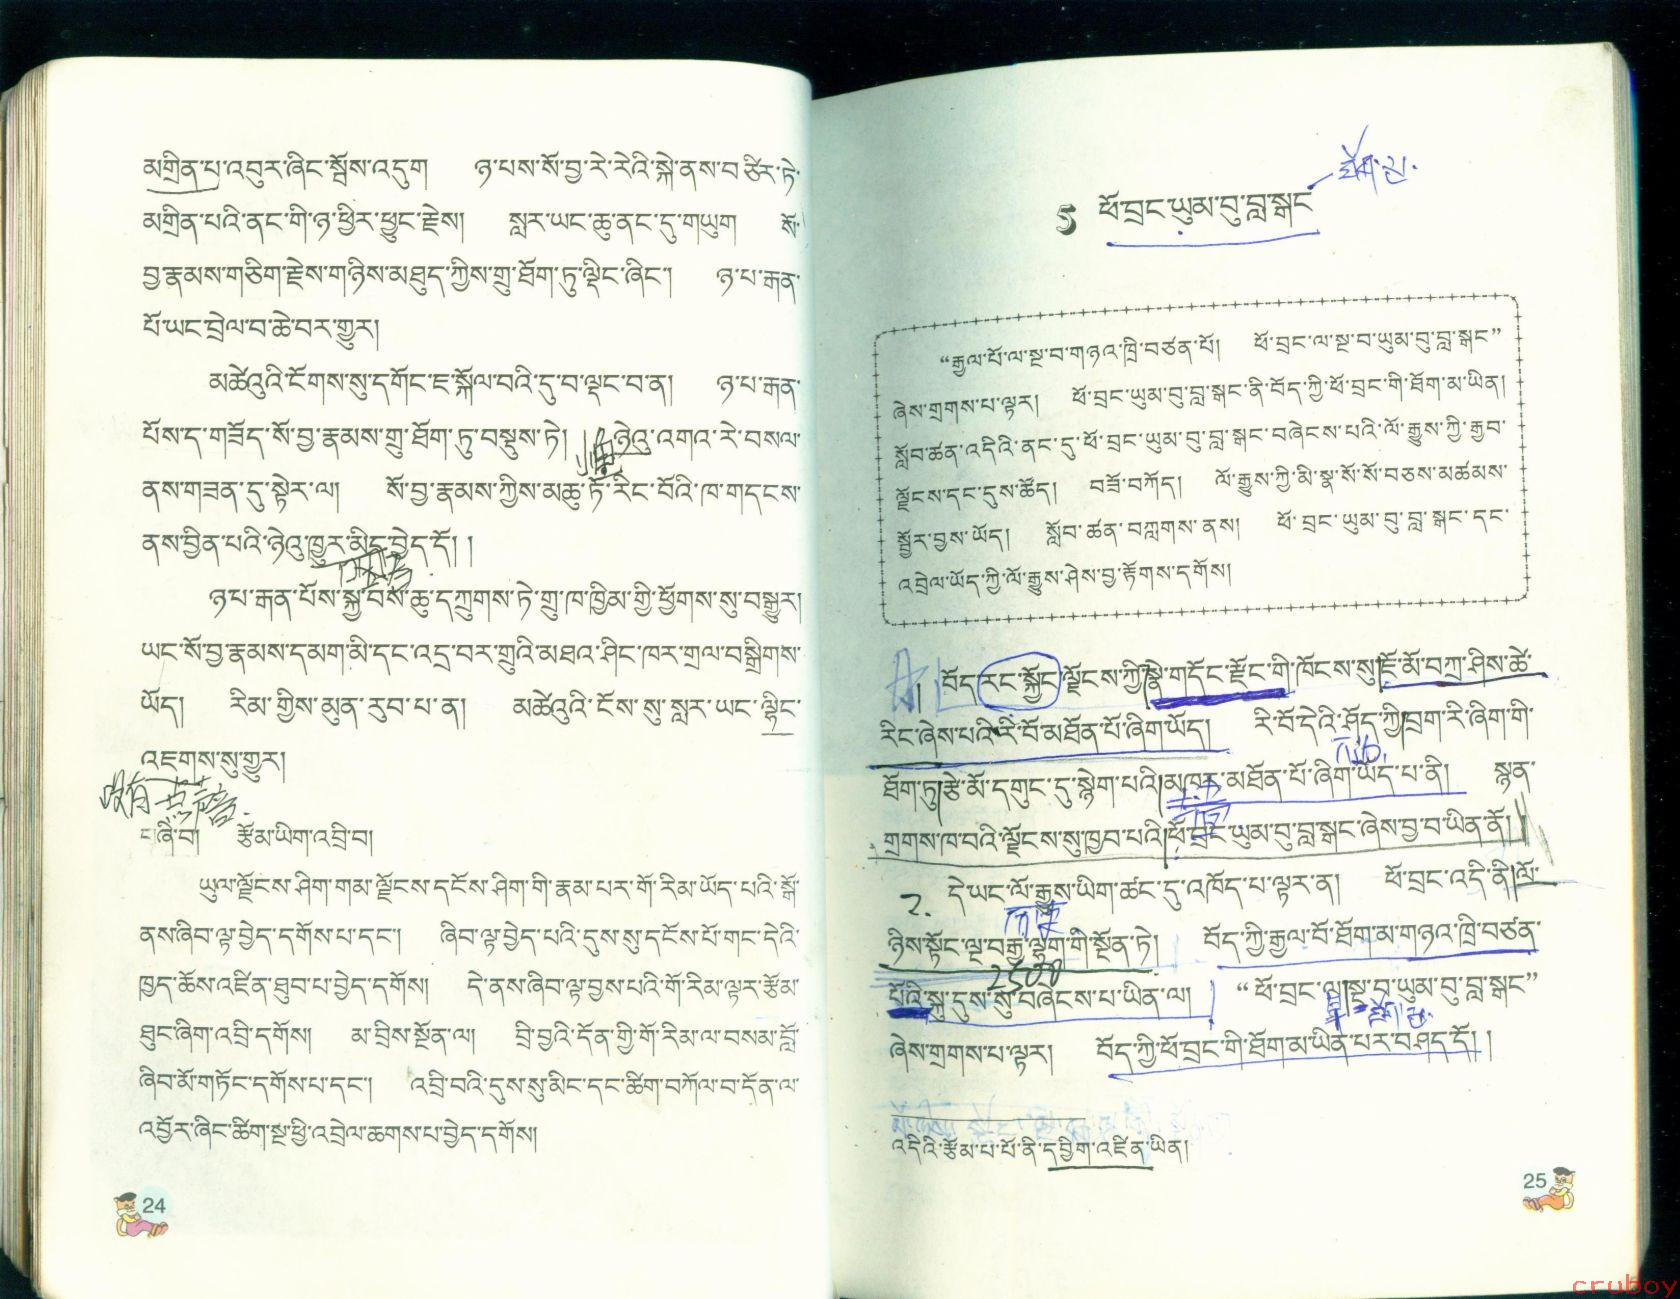 མགྲིན་པ་འབུར་ཞིང་སྦོས་འདུག ཉ་པས་སོ་བྱ་རེ་རེའི་སྐེ་ནས་བཙིར་ཏེ་
མགྲིན་པའི་ནང་གི་ཉ་ཕྱིར་ཕྱུང་རྗེས། སླར་ཡང་ཆུ་ནང་དུ་གཡུག སོ་
བྱ་རྣམས་གཅིག་རྗེས་གཉིས་མཐུད་ཀྱིས་གྲུ་ཐོག་ཏུ་ལྡིང་ཞིང་། ཉ་པ་རྒན་
པོ་ཡང་བྲེལ་བ་ཆེ་བར་གྱུར།
མཚེའུའི་ངོགས་སུ་དགོང་ཇ་སྐོལ་བའི་དུ་བ་ལྡང་བ་ན། ཉ་པ་རྒན་
པོས་ད་གཟོད་སོ་བྱ་རྣམས་གྲུ་ཐོག་ཏུ་བསྡུས་ཏེ། ཉེའུ་འགའ་རེ་བསལ་
ནས་གཟན་དུ་སྟེར་ལ། སོ་བྱ་རྣམས་ཀྱིས་མཆུ་ཏོ་རིང་བོའི་ཁ་གདངས་
ནས་བྱིན་པའི་ཉེའུ་ཁྱུར་མིད་བྱེད་དོ། །
ཉ་པ་རྒན་པོས་སྐྱ་བས་ཆུ་དཀྲུགས་ཏེ་གྲུ་ཁ་ཁྱིམ་གྱི་ཕྱོགས་སུ་བསྒྱུར།
ཡང་སོ་བྱ་རྣམས་དམག་མི་དང་འདྲ་བར་གྲུའི་མཐའ་ཤིང་ཁར་གྲལ་བསྒྲིགས་
ཡོད། རིམ་གྱིས་མུན་རུབ་པ་ན། མཚེའུའི་ངོས་སུ་སླར་ཡང་ལྷིང་
འཇགས་སུ་གྱུར།
རྩོམ་ཡིག་འབྲི་བ།
ཡུལ་ལྗོངས་ཤིག་གམ་ལྗོངས་དངོས་ཤིག་གི་རྣམ་པར་གོ་རིམ་ཡོད་པའི་སྒོ་
ནས་ཞིབ་ལྟ་བྱེད་དགོས་པ་དང་། ཞིབ་ལྟ་བྱེད་པའི་དུས་སུ་དངོས་པོ་གང་དེའི་
ཁྱད་ཆོས་འཛིན་ཐུབ་པ་བྱེད་དགོས། དེ་ནས་ཞིབ་ལྟ་བྱས་པའི་གོ་རིམ་ལྟར་རྩོམ་
ཐུང་ཞིག་འབྲི་དགོས། མ་བྲིས་སྔོན་ལ། བྲི་བྱའི་དོན་གྱི་གོ་རིམ་ལ་བསམ་བློ་
ཞིབ་མོ་གཏོང་དགོས་པ་དང་། འབྲི་བའི་དུས་སུ་མིང་དང་ཚིག་བཀོལ་བ་དོན་ལ་
འབྱོར་ཞིང་ཚིག་སྔ་ཕྱི་འབྲེལ་ཆགས་པ་བྱེད་དགོས།
24
5 ཕོ་བྲང་ཡུམ་བུ་བླ་སྒང
“རྒྱལ་པོ་ལ་སྔ་བ་གཉའ་ཁྲི་བཙན་པོ། ཕོ་བྲང་ལ་སྔ་བ་ཡུམ་བུ་བླ་སྒང”
ཞེས་གྲགས་པ་ལྟར། ཕོ་བྲང་ཡུམ་བུ་བླ་སྒང་ནི་བོད་ཀྱི་ཕོ་བྲང་གི་ཐོག་མ་ཡིན།
སློབ་ཚན་འདིའི་ནང་དུ་ཕོ་བྲང་ཡུམ་བུ་བླ་སྒང་བཞེངས་པའི་ལོ་རྒྱུས་ཀྱི་རྒྱབ་
ལྗོངས་དང་དུས་ཚོད། བཟོ་བཀོད། ལོ་རྒྱུས་ཀྱི་མི་སྣ་སོ་སོ་བཅས་མཚམས་
སྦྱོར་བྱས་ཡོད། སློབ་ཚན་བཀླགས་ནས། ཕོ་བྲང་ཡུམ་བུ་བླ་སྒང་དང་
འབྲེལ་ཡོད་ཀྱི་ལོ་རྒྱུས་ཤེས་བྱ་རྟོགས་དགོས།
བོད་རང་སྐྱོང་ལྗོངས་ཀྱི་སྣེ་གདོང་རྫོང་གི་ཁོངས་སུ་ཇོ་མོ་བཀྲ་ཤིས་ཚེ་
རིང་ཞེས་པའི་རི་བོ་མཐོན་པོ་ཞིག་ཡོད། རི་བོ་དེའི་ཤོད་ཀྱི་བྲག་རི་ཞིག་གི་
ཐོག་ཏུ་རྩེ་མོ་དགུང་དུ་སྙེག་པའི་མཁར་མཐོན་པོ་ཞིག་ཡོད་པ་ནི། སྙན་
གྲགས་ཁ་བའི་ལྗོངས་སུ་ཁྱབ་པའི་ཕོ་བྲང་ཡུམ་བུ་བླ་སྒང་ཞེས་བྱ་བ་ཡིན་ནོ། །
2. དེ་ཡང་ལོ་རྒྱུས་ཡིག་ཚང་དུ་འཁོད་པ་ལྟར་ན། ཕོ་བྲང་འདི་ནི་ལོ་
ཉིས་སྟོང་ལྔ་བརྒྱ་ལྷག་གི་སྔོན་ཏེ། བོད་ཀྱི་རྒྱལ་པོ་ཐོག་མ་གཉའ་ཁྲི་བཙན་
2500
པོའི་སྐུ་དུས་སུ་བཞེངས་པ་ཡིན་ལ། “ཕོ་བྲང་ལ་སྔ་བ་ཡུམ་བུ་བླ་སྒང”
ཞེས་གྲགས་པ་ལྟར། བོད་ཀྱི་ཕོ་བྲང་གི་ཐོག་མ་ཡིན་པར་བཤད་དོ། །
འདིའི་རྩོམ་པ་པོ་ནི་དབྱིག་འཛིན་ཡིན།
25
cruboy